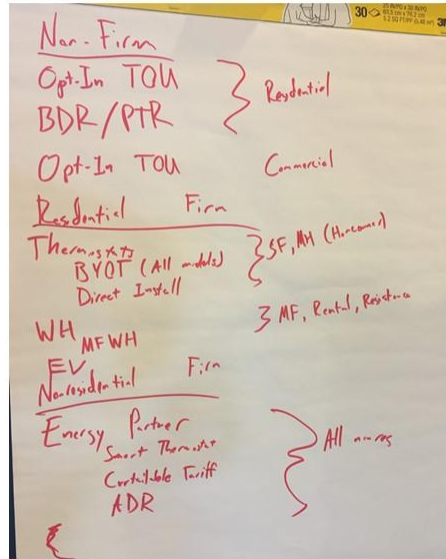 30
25 IN/PO x 30 IN/PO
63,5 cm x 76,2 cm
Non-Firm
Opt-In TOU
BDR/PTR
Residential
Opt-In TOU Commercial
Residential Firm
Thermostats
BYOT (All models)
Direct Install
SF, MH (Homeowner)
WH
MFWH
MF, Rental, Resistance
EV
Nonresidential Firm
Energy Partner
Smart Thermostat
Curtailable Tariff
ADR
All